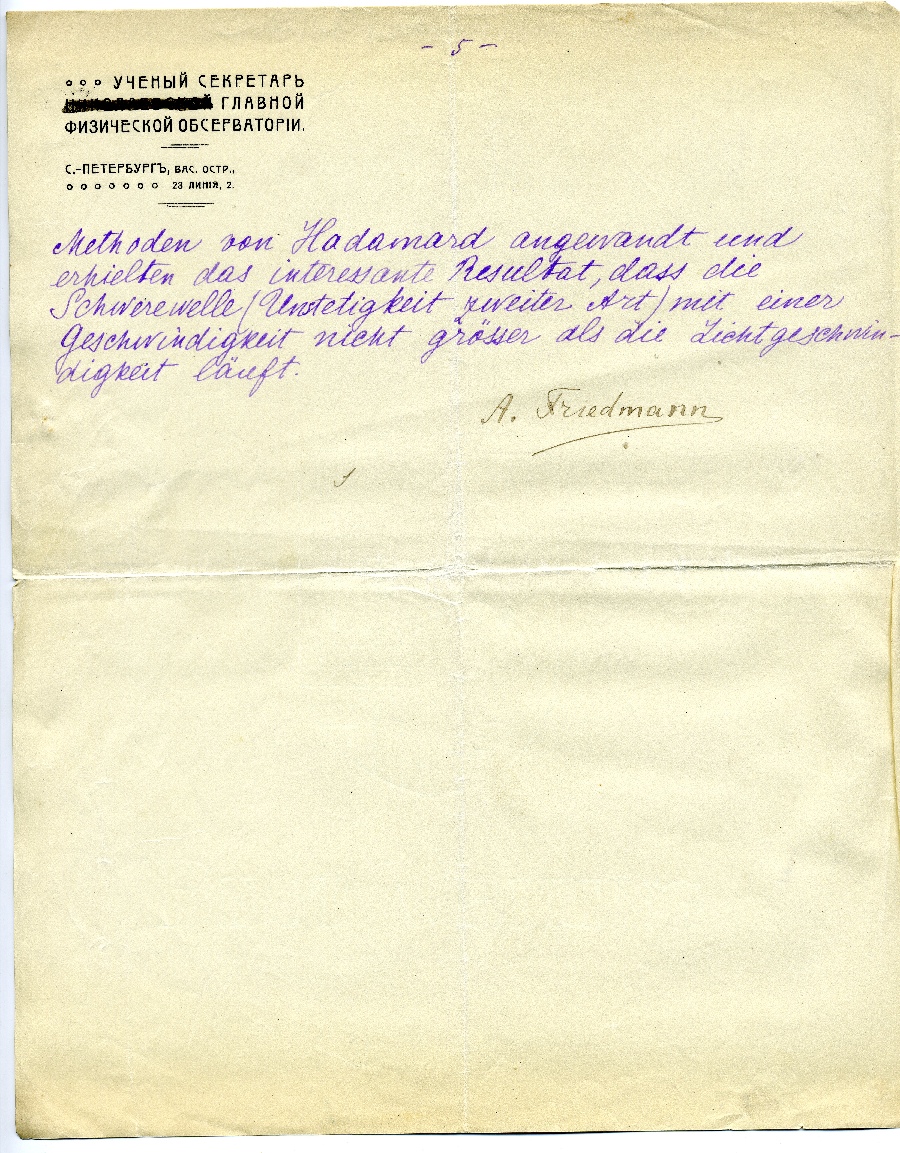 - 5 -
УЧЕНЫЙ СЕКРЕТАРЬ
ГЛАВНОЙ
ФИЗИЧЕСКОЙ ОБСЕРВАТОРІИ.
С.-ПЕТЕРБУРГЪ, ВАС. ОСТР.,
23 ЛИНІЯ, 2.
Methoden von Hadamard angewandt und
erhielten das interessante Resultat, dass die
Schwerewelle (Unstetigkeit zweiter Art) mit einer
Geschwindigkeit nicht grösser als die Lichtgeschwin-
digkeit läuft.
A. Friedmann